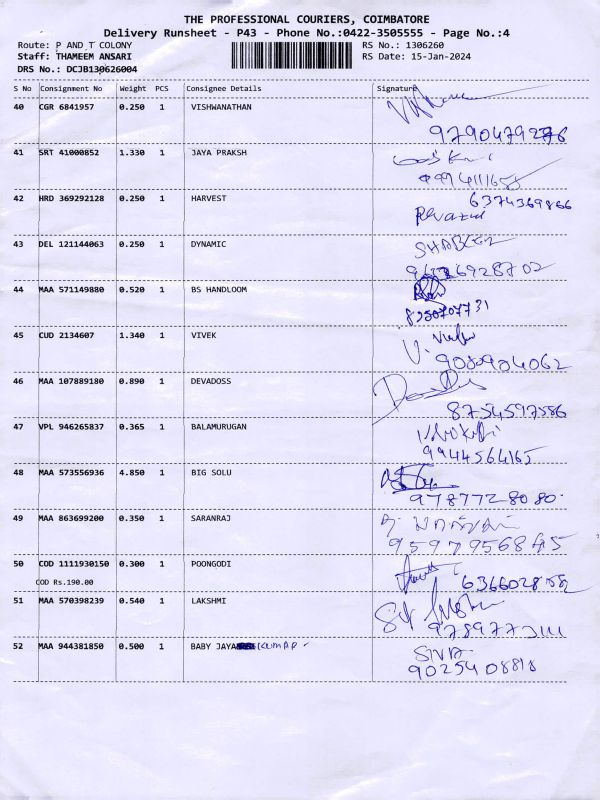 THE PROFESSIONAL COURIERS, COIMBATORE
Delivery Runsheet - P43 - Phone No.:0422-3505555 - Page No.:4
Route: P AND T COLONY RS No.: 1306260
Staff: THAMEEM ANSARI RS Date: 15-Jan-2024
DRS No.: DCJB130626004
S No Consignment No Weight PCS Consignee Details Signature
40 CGR 6841957 0.250 1 VISHWANATHAN
41 SRT 41000852 1.330 1 JAYA PRAKSH
42 HRD 369292128 0.250 1 HARVEST 6374369866
43 DEL 121144063 0.250 1 DYNAMIC
44 MAA 571149880 0.520 1 BS HANDLOOM
8250707731
45 CUD 2134607 1.340 1 VIVEK
9080904062
46 MAA 107889180 0.890 1 DEVADOSS
8754597586
47 VPL 946265837 0.365 1 BALAMURUGAN
9944564165
48 MAA 573556936 4.850 1 BIG SOLU
9787728080
49 MAA 863699200 0.350 1 SARANRAJ
50 COD 1111930150 0.300 1 POONGODI
COD Rs.190.00
51 MAA 570398239 0.540 1 LAKSHMI
9789773111
52 MAA 944381850 0.500 1 BABY JAYA KUMAR SIVA
9025408818